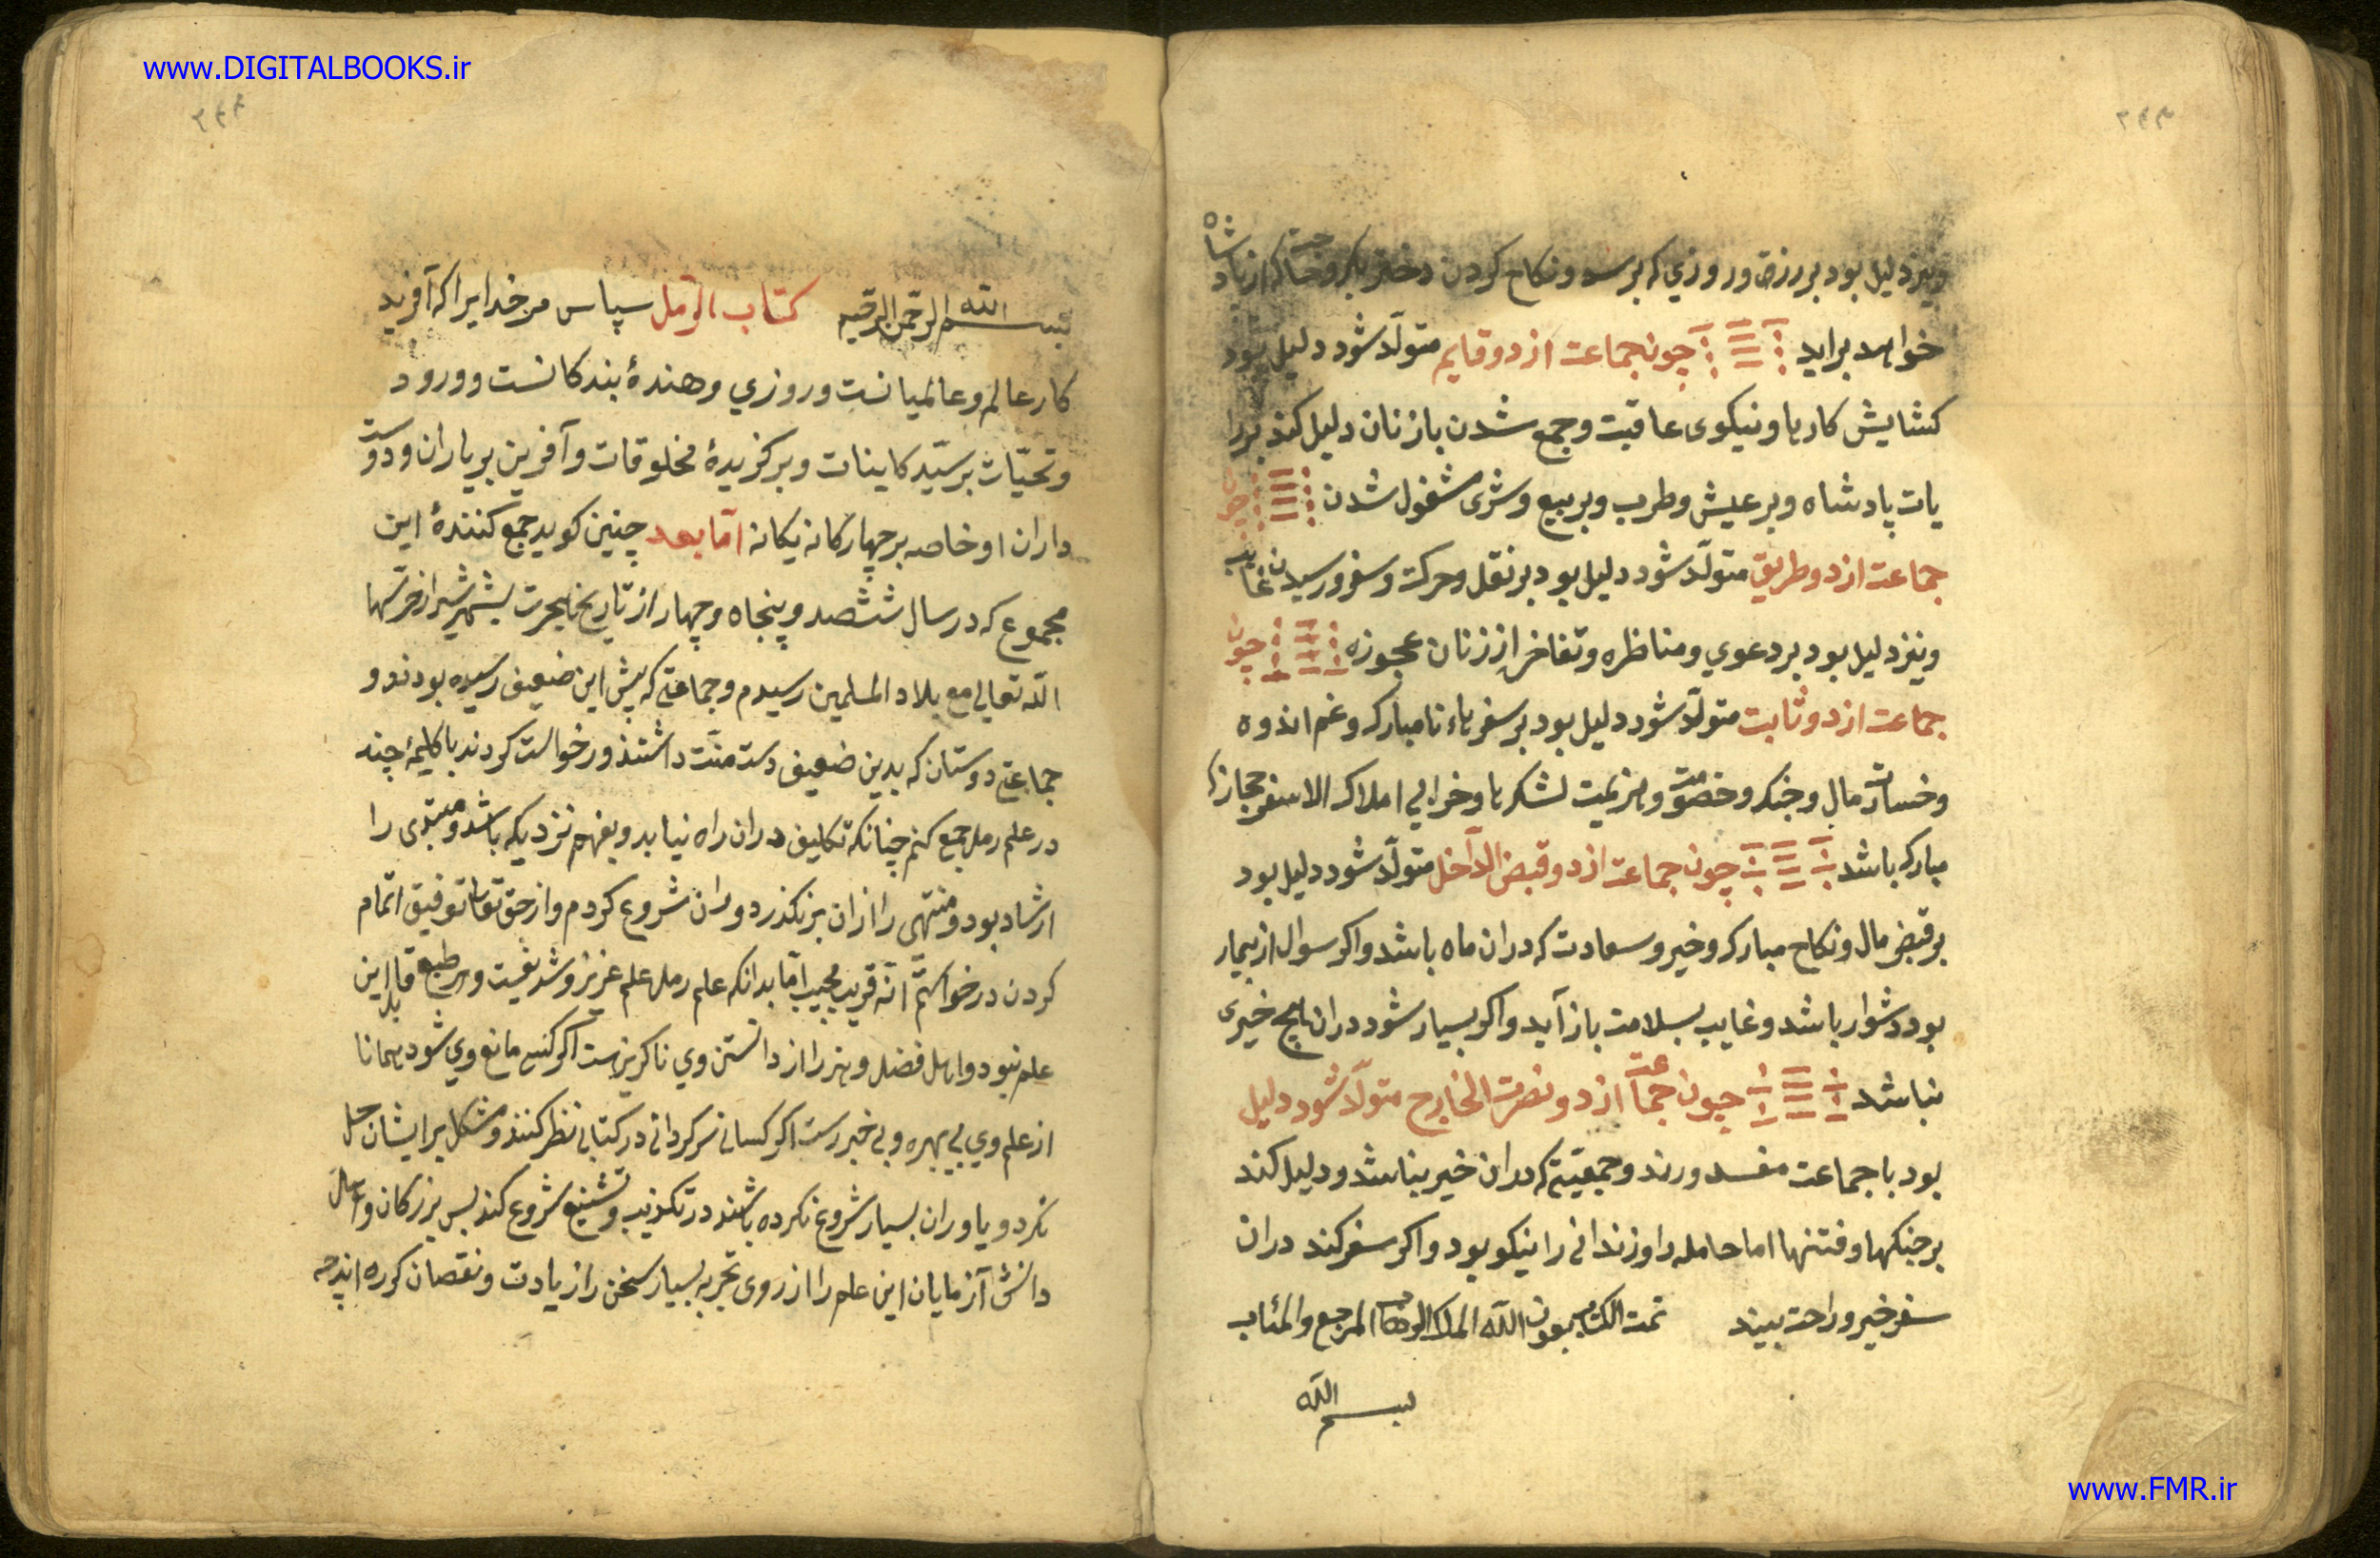 www.DIGITALBOOKS.ir
ونیز دلیل بود بر رزق و روزي که برسد و نکاح کردن دختر بکر و که از پادشاه
خواهد براید چون جماعت از دو قایم متولّد شود دلیل بود
کشایش کارها و نیکوی عاقبت و جمع شدن با زنان دلیل کند بررا
یات پادشاه و بر عیش و طرب و بر بیع و شری مشغول شدن چون
جماعت از دو طریق متولّد شود دلیل بود بر نقل و حرکت و سفر و رسیدن غایب
ونیز دلیل بود بر دعوي و مناظره و تفاخر از زنان عجوزه چون
جماعت از دو ثابت متولّد شود دلیل بود بر سفرهاء نامبارک و غم اندوه
و خسارت مال و جنک و خصومت و هزیمت لشکرها و خرابي املاک الا سفر حجاز که
مبارک باشد چون جماعت از دو قبض الداخل متولّد شود دلیل بود
بر قبض مال و نکاح مبارک و خیر و سعادت که دران ماه باشد و اکر سوال از بیمار
بود دشوار باشد و غایب بسلامت باز آید و اکر بسیار شود دران هیچ خیری
نباشد چون جماعت از دو نصرت الخارج متولّد شود دلیل
بود با جماعت مفسد و رند و جمعیّتي که دران خیر نباشد و دلیل کند
بر جنکها و فتنها اما حامله را و زندانی را نیکو بود و اکر سفر کند دران
سفر خیر و راحت بیند تمت الکتاب بعون الله الملک الوهاب المرجع والمئاب
بسم الله
بسم الله الرحمن الرحیم کتاب الرمل سپاس مر خدایرا که آفرید
کار عالم و عالمیانست و روزي دهندۀ بندکانست و درود
و تحیّات بر سیّد کاینات و برکزیدۀ مخلوقات و آفرین بر یاران و دوست
داران او خاصه بر چهار کانه یکانه امّا بعد چنین کوید جمع کنندۀ این
مجموع که در سال ششصد و پنجاه و چهار از تاریخ هجرت بشهر شیراز حرّسها
الله تعالي مع بلاد المسلمین رسیدم و جماعتي که پیش این ضعیف رسیده بودند و
جماعتي دوستان که بدین ضعیف دست منّت داشتند درخواست کردند تا کلیمۀ چند
در علم رمل جمع کنم چنانکه تکلیف دران راه نیابد و بفهم نزدیک باشد و مبتدی را
ارشاد بود و منتهی را ازان بر نکذرد دران شروع کردم و از حق تعالی توفیق اتمام
کردن درخواستم انّه قریب مجیب امّا بدانکه علم رمل علم عزیز و شریفست و هر طبع قابل این
علم نبود و اهل فضل و هنر را از دانستن وي ناکریزست اکر کسي مانع وي شود همانا
از علم وي بي بهره و بي خبرست اکر کسانی سرکردانی در کتابی نظر کنند و مشکل برایشان حل
نکردد یا دران بسیار شروع نکرده باشند در تکذیب و تشنیع شروع کند پس بزرکان و
دانش آزمایان این علم را از روی تجربه بسیار سخن را زیادت و نقصان کرده اند
www.FMR.ir